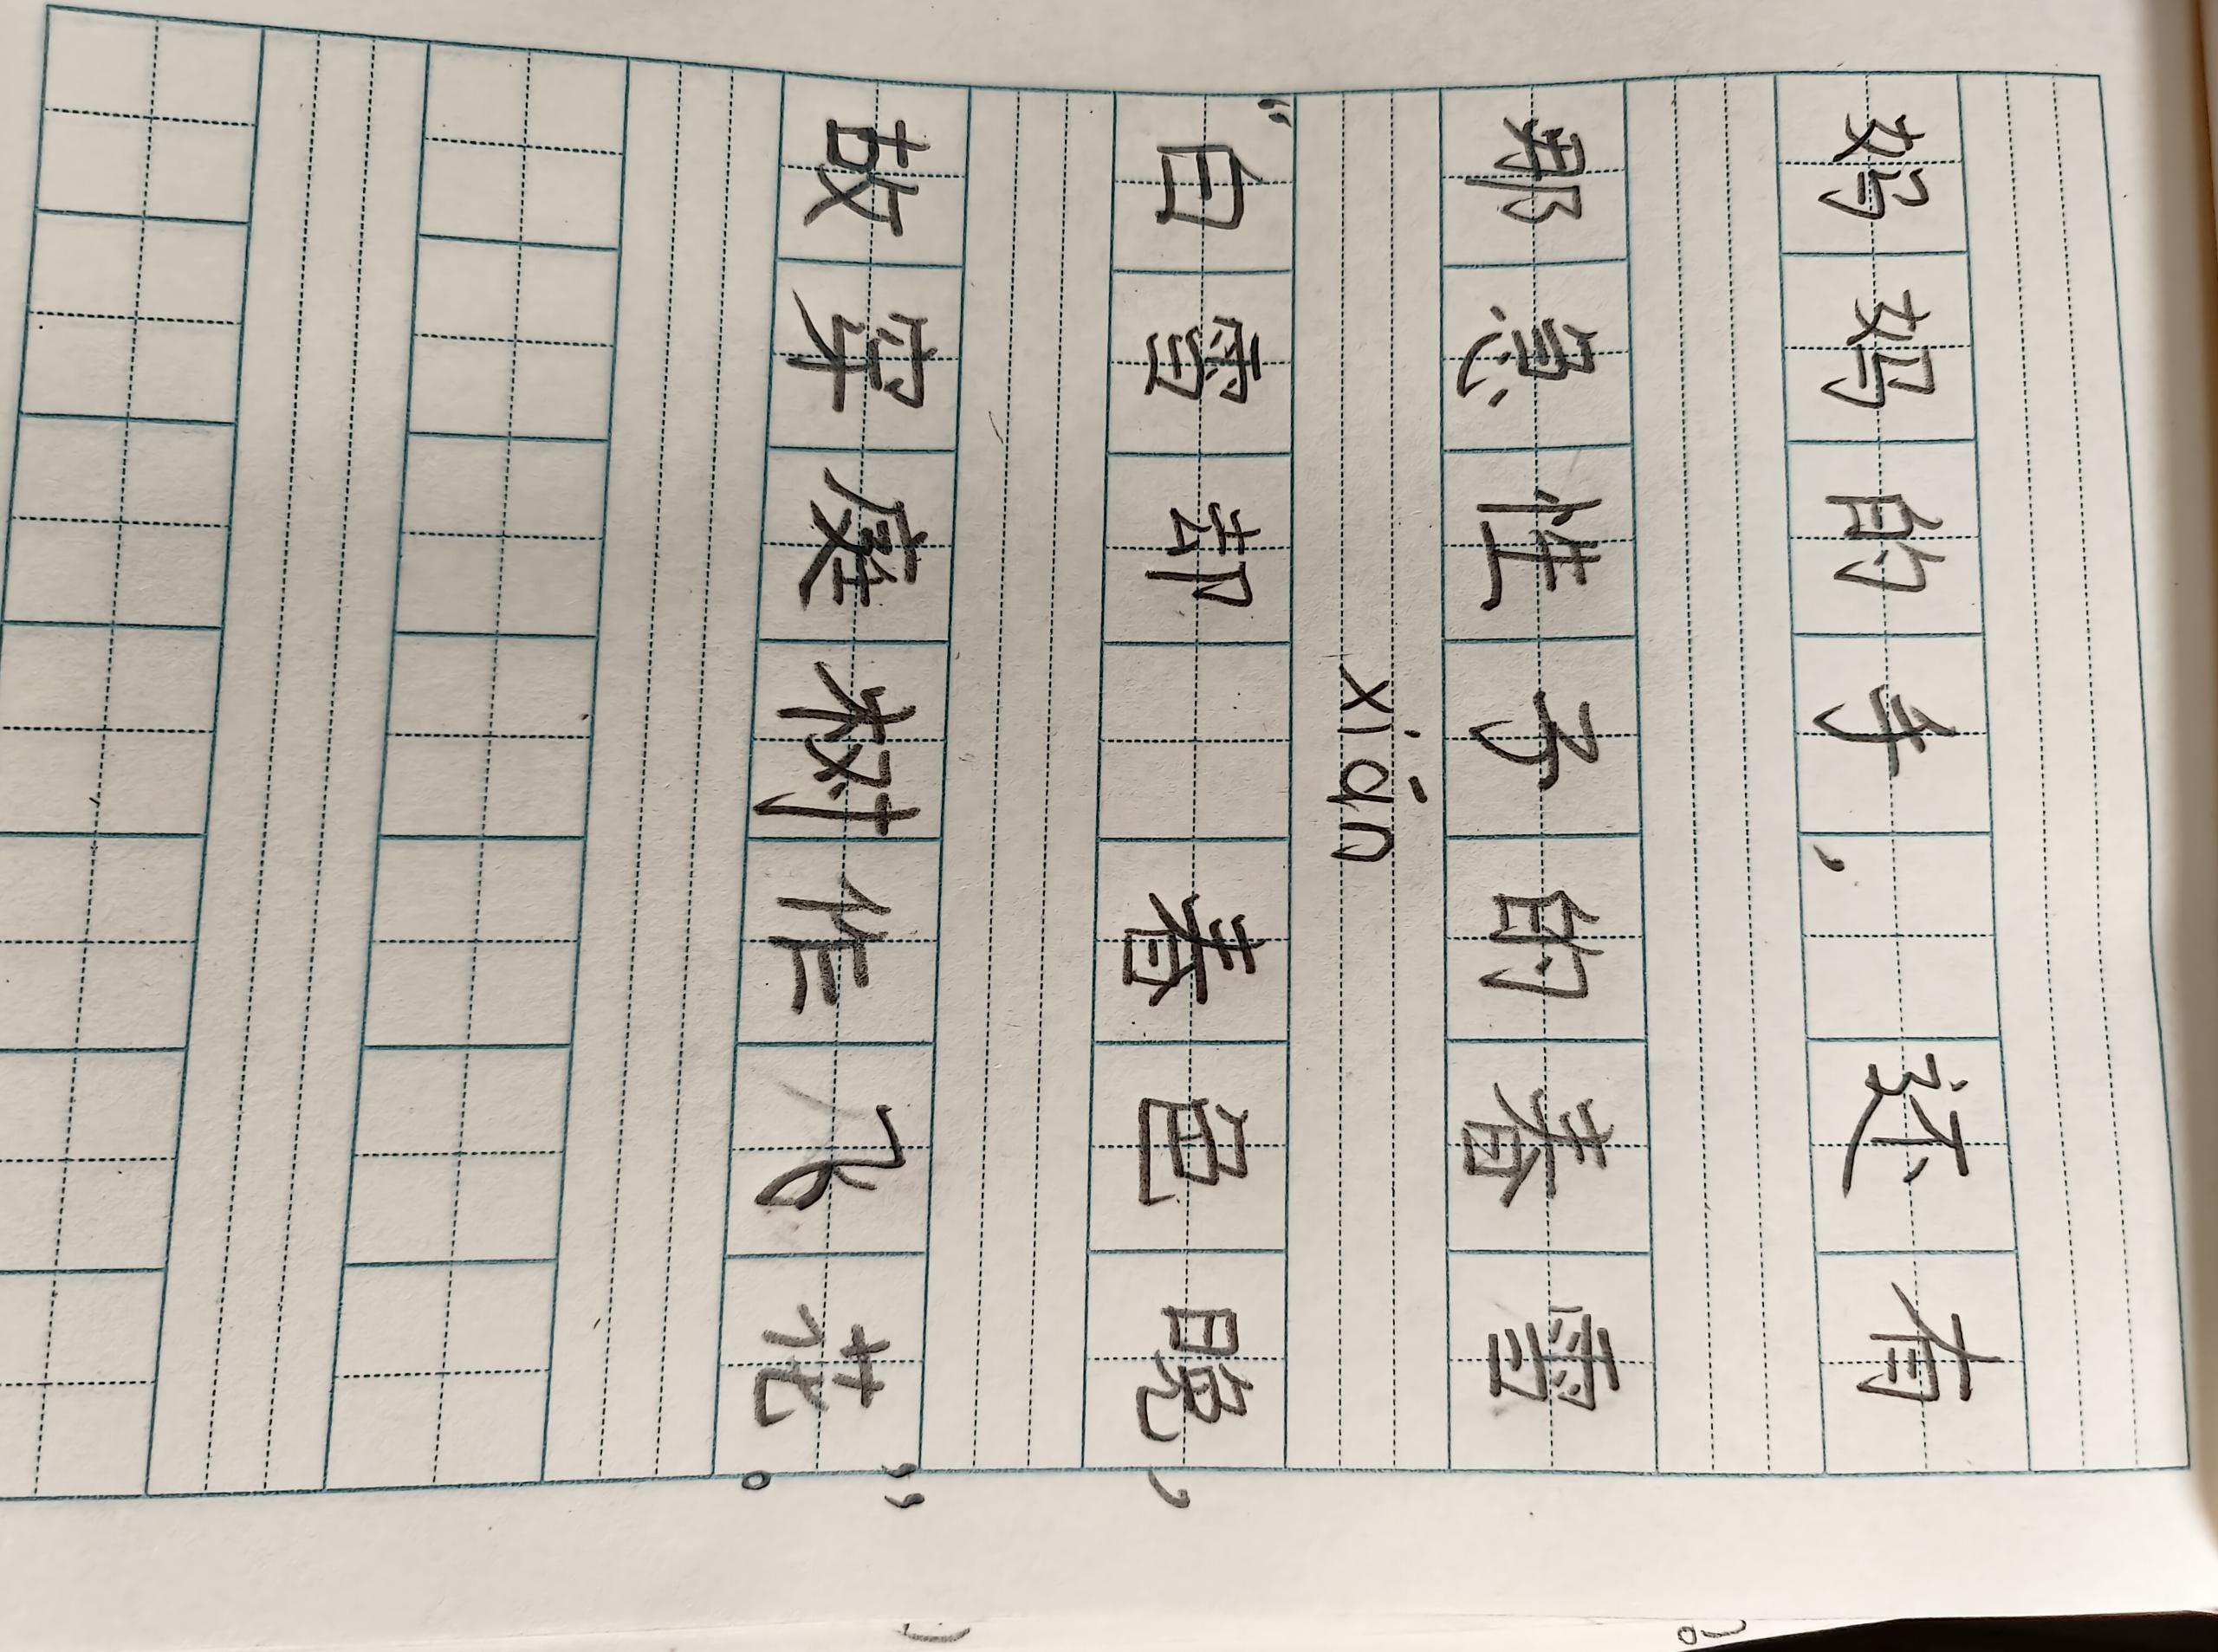 妈妈的手，还有
那急性子的春雪
xián
“白雪却春色晚，
故穿庭树作飞花”。